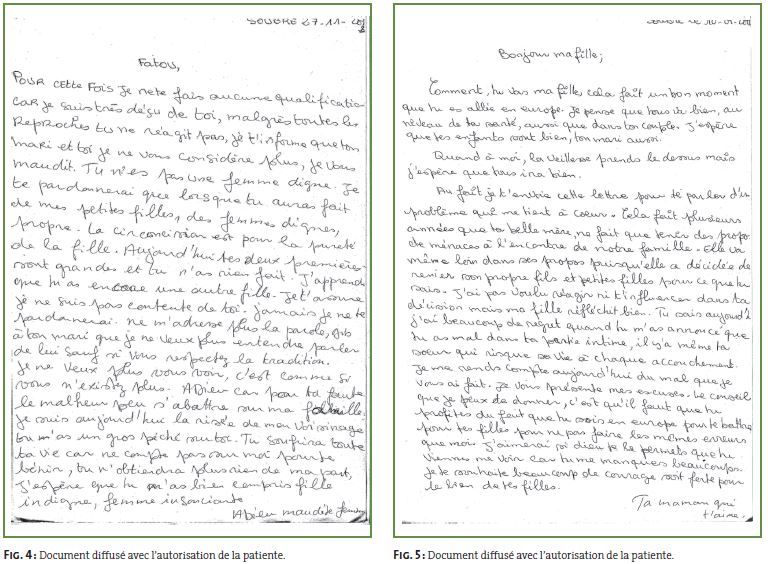 SOUBRE 27-11-
Fatou,
POUR cette Fois Je ne te fais aucune qualification
car je suis très déçu de toi, malgrès toutes les
Reproches tu ne réagit pas, je t'informe que ton
mari et toi je ne vous considère plus, je vous
maudit. Tu n'es pas une femme digne. Je
te pardonnerai que lorsque tu auras fait
de mes petites filles, des femmes dignes,
propre. La circoncision est pour la pureté
de la fille. Aujourd'hui tes deux premières
sont grandes et tu n'as rien fait. J'apprend
que tu as encore une autre fille. Je t'avoue
je ne suis pas contente de toi. Jamais je ne te
pardonnerai. ne m'adresse plus la parole, dis
à ton mari que je ne veux plus entendre parler
de lui sauf si vous respectez la tradition.
Je ne veux plus vous voir, c'est comme si
vous n'existiez plus. ADieu car par ta faute
le malheur peu s'abattre sur ma famille.
Je suis aujourd'hui la risée de mon voisinage
tu m'as un gros péché sur toi. Tu souffrira toute
ta vie car ne compte pas sur moi pour te
bénir, tu n'obtiendra plus rien de ma part,
J'espère que tu m'as bien compris fille
indigne, femme insouciante
ADieu maudite femme
Bonjour ma fille;
Comment, tu vas ma fille cela fait un bon moment
que tu es allée en europe. Je pense que tous va bien, au
niveau de ta santé, aussi que dans ton couple. J'espère
que tes enfants vont bien, ton mari aussi.
Quand à moi, la vieillesse prends le dessus mais
j'espère que tous ira bien.
Au fait je t'envoie cette lettre pour te parler d'un
problème qui me tient à coeur. Cela fait plusieurs
années que ta belle mère, ne fait que tenir des propos
de menaces à l'encontre de notre famille. Elle va
même loin dans ses propos puisqu'elle a décidée de
renier son propre fils et petites filles pour ce que tu
sais. J'ai pas voulu réagir ni t'influencer dans ta
décision mais ma fille réfléchit bien. Tu sais aujourd'h
j'ai beaucoup de regret quand tu m'as annoncé que
tu as mal dans ta partie intime, il y a même ta
soeur qui risque sa vie à chaque accouchement.
Je me rends compte aujourd'hui du mal que je
vous ai fait. Je vous présente mes excuses. Le conseil
que je peux te donner, c'est qu'il faut que tu
profites du faut que tu sois en europe pour te battre
pour tes filles pour ne pas faire les mêmes erreurs
que moi. J'aimerai si dieu te le permets que tu
viennes me voir car tu me manques beaucoups.
Je te souhaite beaucoup de courage sois forte pour
le bien de tes filles.
Ta maman qui
t'aime.
FIG. 4 : Document diffusé avec l'autorisation de la patiente.
FIG. 5 : Document diffusé avec l'autorisation de la patiente.